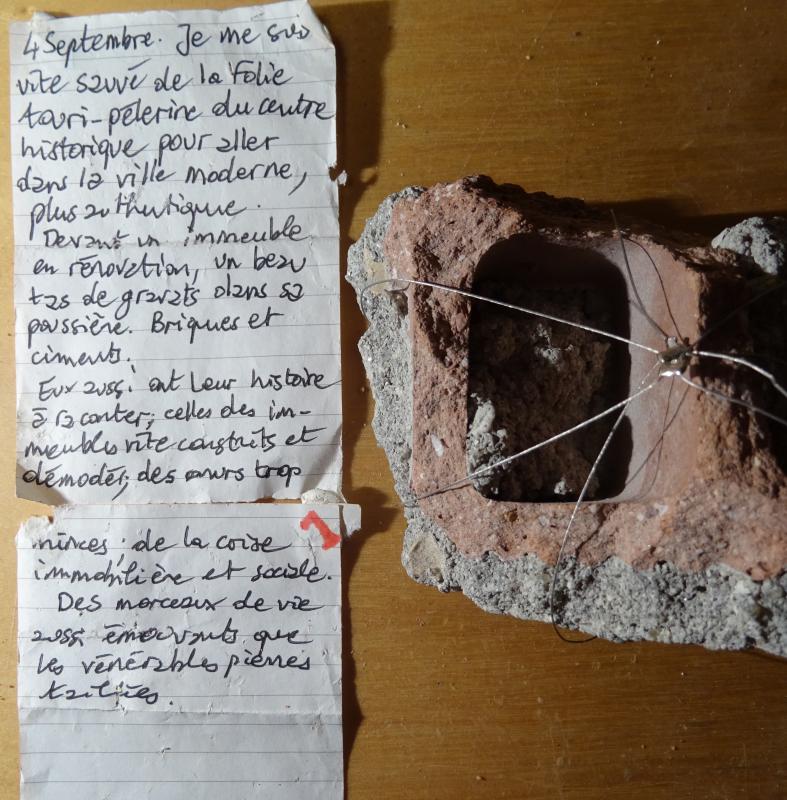 4 Septembre. Je me suis
vite sauvé de la Folie
touri-pélerine du centre
historique pour aller
dans la ville moderne,
plus authentique.
Devant un immeuble
en rénovation, un beau
tas de gravats dans sa
poussière. Briques et
ciments.
Eux aussi ont leur histoire
à raconter; celles des im-
meubles vite construits et
démodés, des murs trop
1
minces; de la crise
immobilière et sociale.
Des morceaux de vie
aussi émouvants que
les vénérables pierres
taillées.